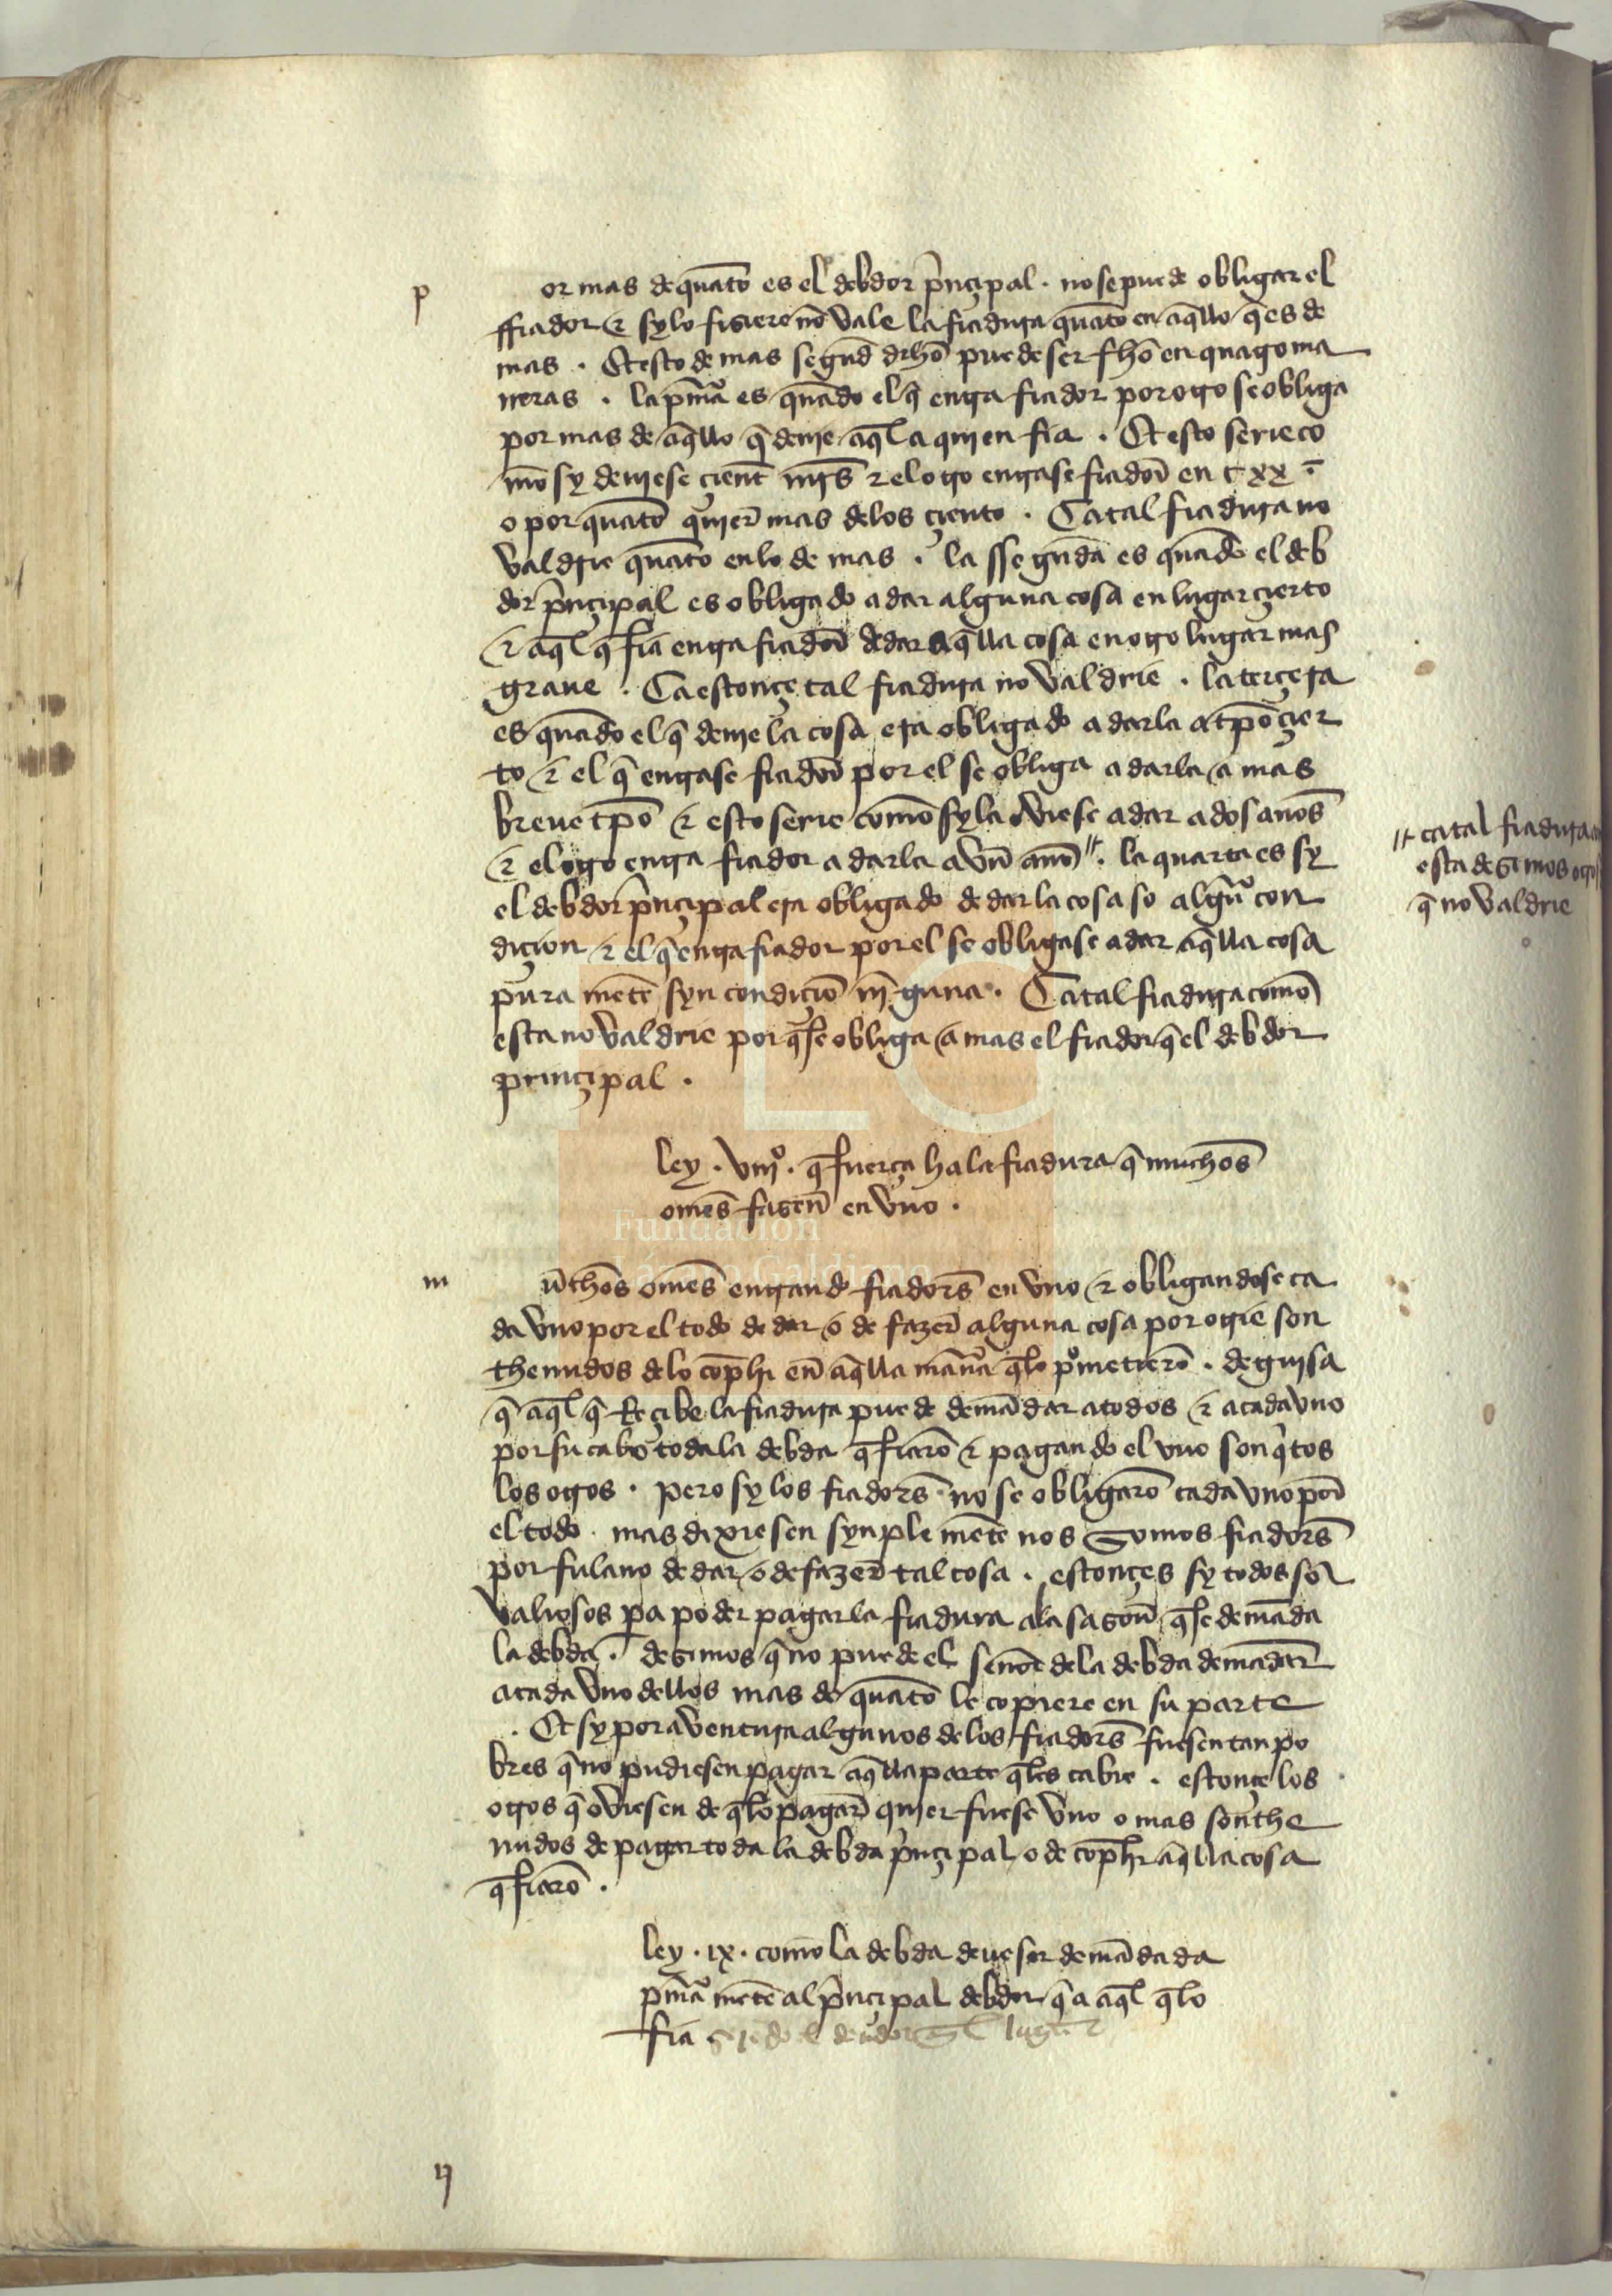 p
or mas de quãto es el debdor p̃nçipal . no se puede obligar el
ffiador ⁊ sy lo fisiere nõ vale la fiadura quãto en aq̃llo q̃ es de
mas . Et esto de mas segũd dr̃ho puede ser fho en quatro ma
neras . la pmã es quãdo el q̃ entra fiador por otro se obliga
por mas de aq̃llo q̃ deue aq̃l a quien fia . Et esto serie co
mõ sy deuiese çient mrs ⁊ el otro entrase fiador en cxx
o por quãto quier mas delos çiento . Ca tal fiadura no
valdrie quãto en lo de mas . la ssegũda es quãdo el deb
dor p̃nçipal es obligado a dar alguna cosa en lugar çierto
⁊ aq̃l q̃ fia entra fiador de dar aq̃lla cosa en otro lugar mas
graue . Ca estonçe tal fiadura no valdrie . la terçera
es quãdo el q̃ deue la cosa era obligado a darla a tpõ çier
to ⁊ el q̃ entrase fiador por el se obliga a darla a mas
breue tpõ ⁊ esto serie comõ sy la oviese a dar a dos anõs
⁊ el otro entra fiador a darla a vũ anõ . la quarta es sy
// ca tal fiadura
esta desimos otro
q̃ no valdrie
el debdor p̃nçipal era obligado de dar la cosa so algũ con
diçion ⁊ el q̃ entra fiador por el se obligase a dar aq̃lla cosa
pura mẽte syn condiçiõ nĩguna . Ca tal fiadura comõ
esta no valdrie por q̃ se obliga a mas el fiador q̃ el debdor
prinçipal .
ley . viijº . q̃ fuerça ha la fiadura q̃ muchos
omẽs fasen en vno .
m
ũchos omẽs entrando fiadores en vno ⁊ obligandose ca
da vno por el todo de dar o de fazer alguna cosa por otrie son
thenudos de lo cõplir en aq̃lla manã q̃ lo pºmetierõ . de guisa
q̃ aq̃l q̃ Reçibe la fiadura puede demãdar a todos ⁊ a cada vno
por su cabo toda la debda q̃ fiarõ ⁊ pagando el vno son q̃tos
los otros . pero sy los fiadores no se obligarõ cada vno por
el todo . mas dixiesen synple mẽte nos Somos fiadores
por fulano de dar o de fazer tal cosa . estonçes sy todos sõ
valiosos pa poder pagar la fiadura ala sasõn q̃ se demãda
la debda . desimos q̃ no puede el señor dela debda demãdar
a cada vno dellos mas de quãto le copiere en su parte
. Et sy por aventura algunos de los fiadores fuesen tan po
bres q̃ no pudiesen pagar aq̃lla parte q̃ les cabie . estonçe los
otros q̃ oviesen de q̃ lo pagar quier fuese vno o mas son the
nudos de pagar toda la debda p̃nçipal o de cõplir aq̃lla cosa
q̃ fiarõ .
ley . ix . comõ la debda deue ser demãdada
pmã mẽte al p̃nçipal debdor q̃ a aq̃l q̃ lo
fia .